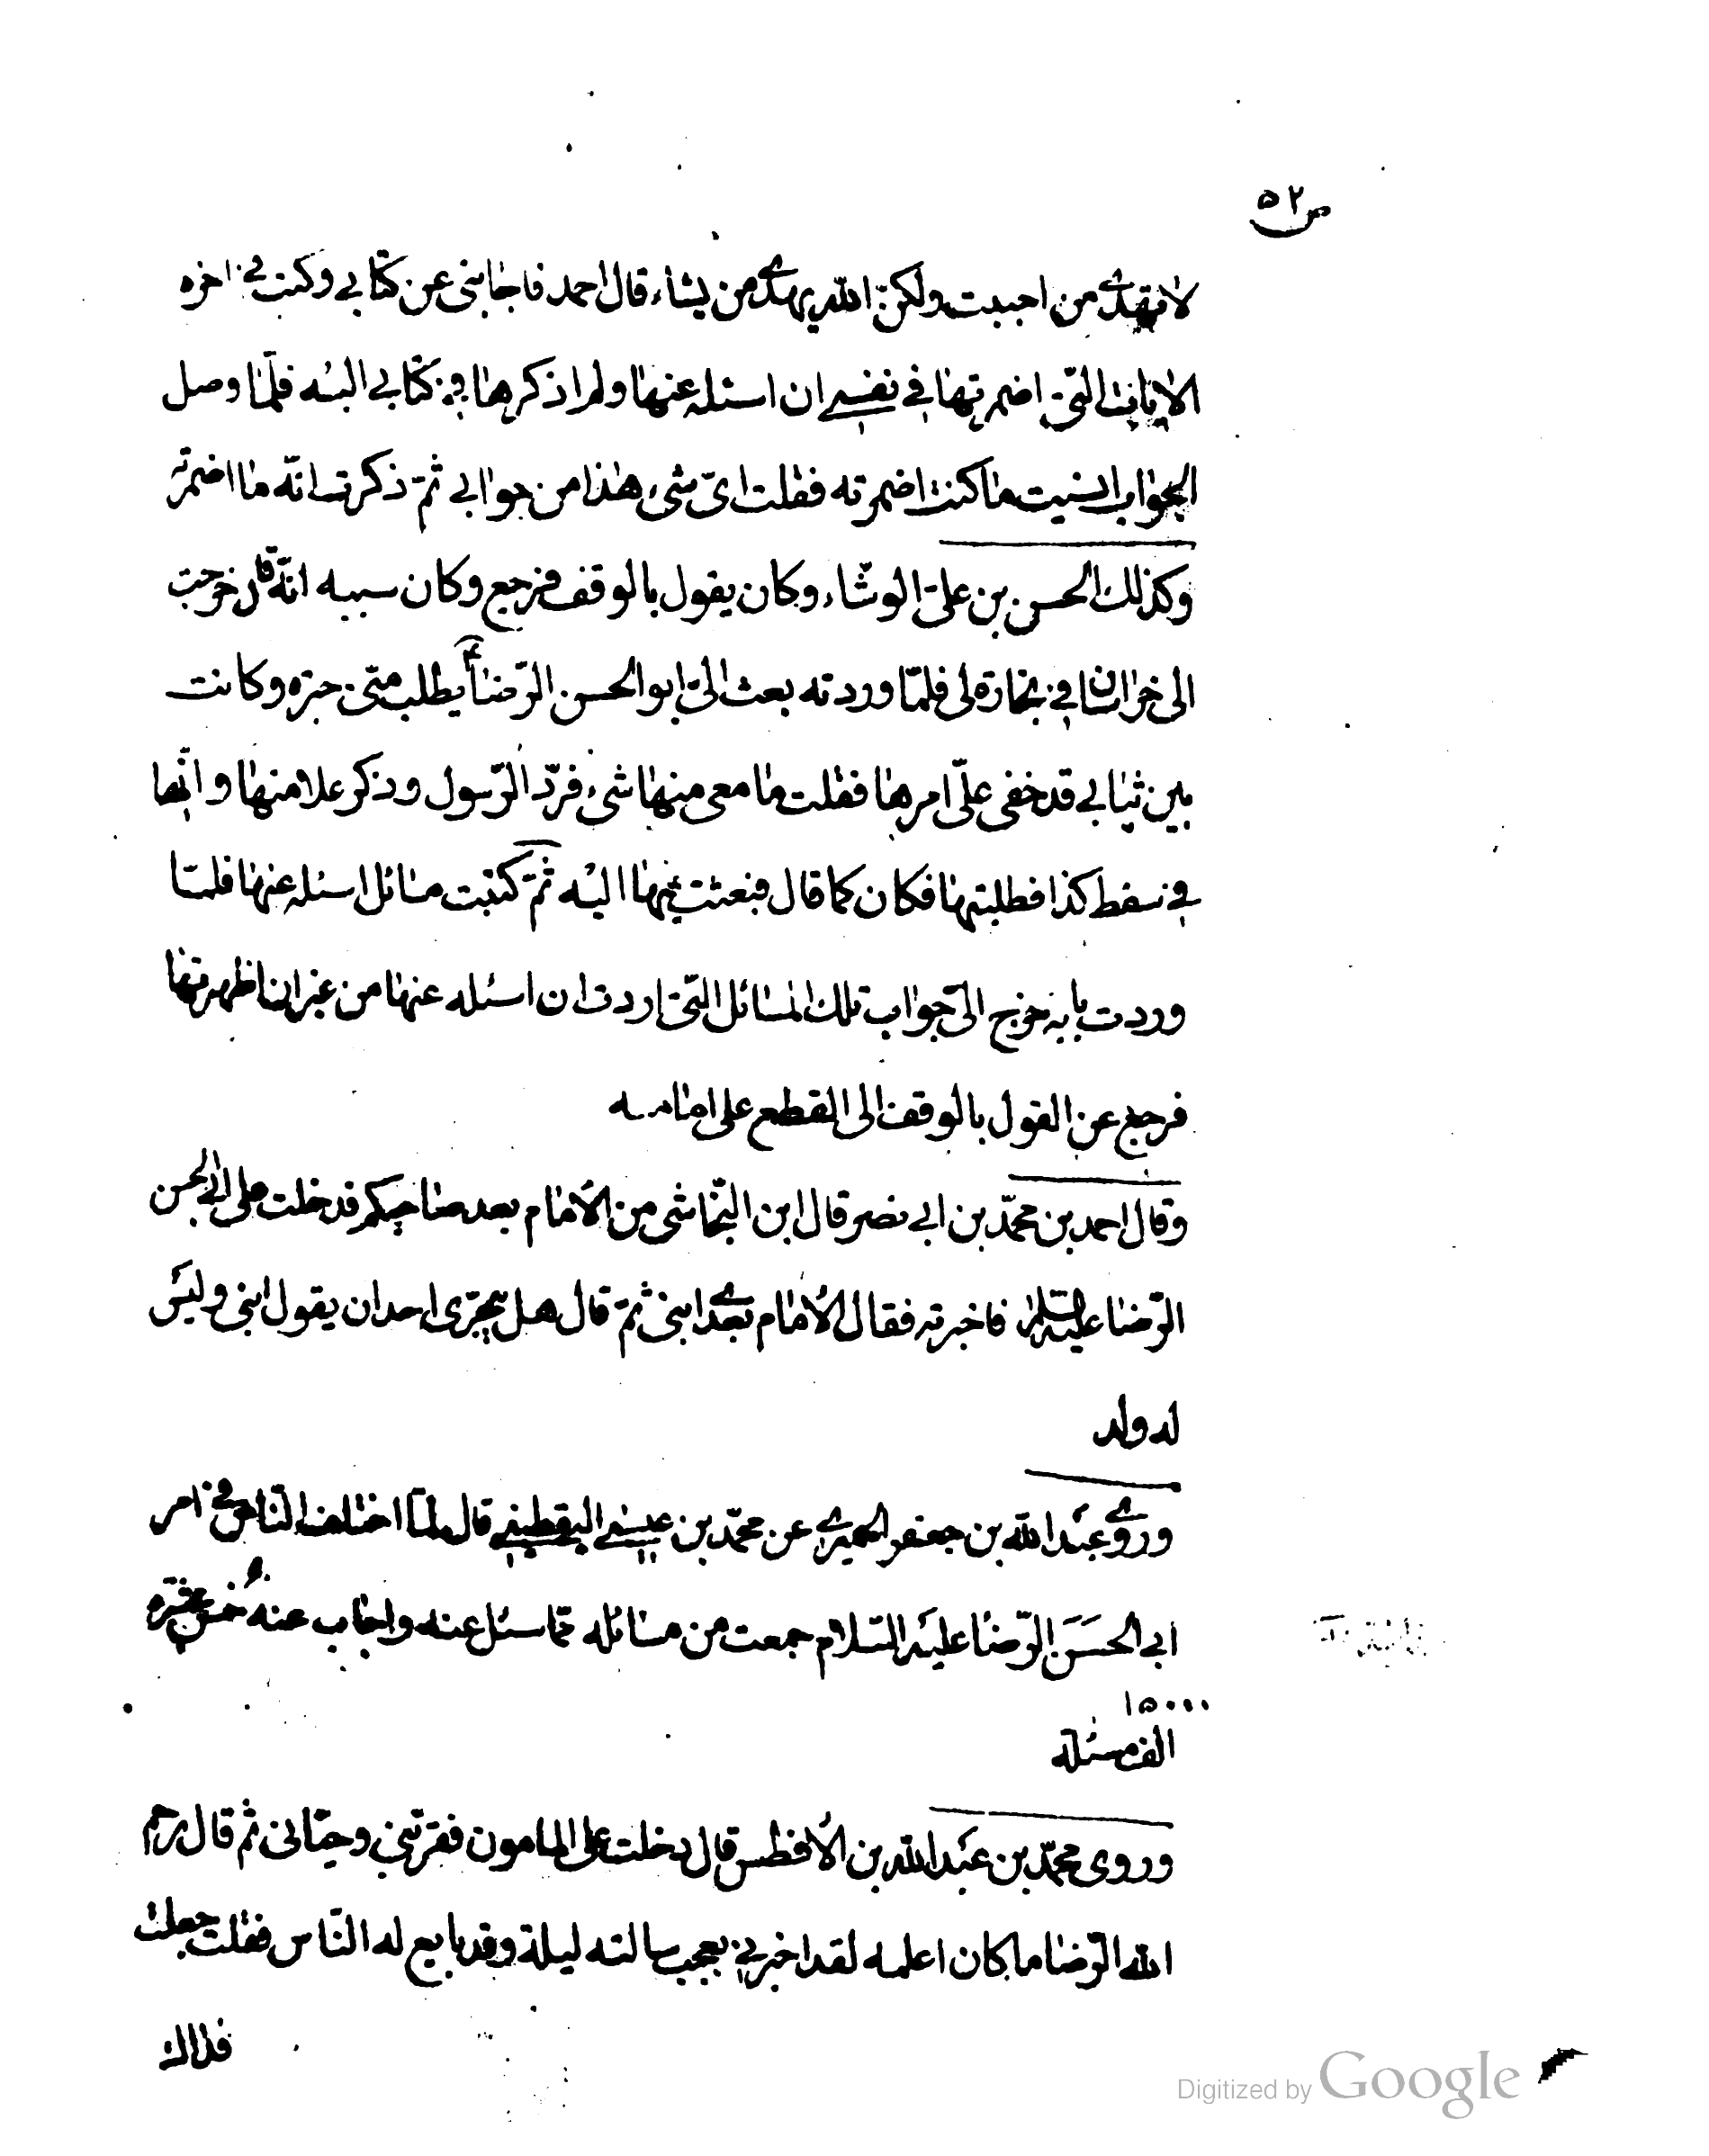 ص ٥٢
لا تهدي من احببت ولكن الله يهدي من يشاء قال احمد فاجابني عن كتابي وكتب في اخره
الايات التي اضمرتها في نفسي ان اسئله عنها ولم اذكرها في كتابي اليه فلما وصل
الجواب انسيت ما كنت اضمرته فقلت اي شيء هذا من جوابي ثم ذكرت انه ما اضمرته
وكذلك الحسن بن علي الوشاء وكان يقول بالوقف فرجع وكان سببه انه قال خرجت
الى خراسان في تجارة لي فلما وردته بعث الي ابو الحسن الرضا يطلب مني حبرة وكانت
بين ثيابي قد خفي علي امرها فقلت ما معي منها شيء فرد الرسول وذكر علامتها وانها
في سفط كذا فطلبتها فكان كما قال فبعثت بها اليه ثم كتبت مسائل اسئله عنها فلما
وردت بابه خرج الي جواب تلك المسائل التي اردت ان اسئله عنها من غير ان اظهرتها
فرجع عن القول بالوقف الى القطع على امامته
وقال احمد بن محمد بن ابي نصر قال ابن النجاشي من الامام بعد صاحبكم فدخلت على ابي الحسن
الرضا عليه السلام فاخبرته فقال الامام بعدي ابني ثم قال هل يتجرى احد ان يقول ابني وليس
له ولد
وروي عبد الله بن جعفر الحميري عن محمد بن عيسى اليقطيني قال لما اختلف الناس في امر
ابي الحسن الرضا عليه السلام جمعت من مسائله مما سئل عنه واجاب عنه خمس عشرة
١٥٠٠٠
الف مسئلة
وروى محمد بن عبد الله بن الافطس قال دخلت على المامون فقربني وحياني ثم قال رحم
الله الرضا ما كان اعلمه لقد اخبرني بعجب سالته ليلة وقد بايع له الناس فقلت جعلت
فداك
Digitized by Google